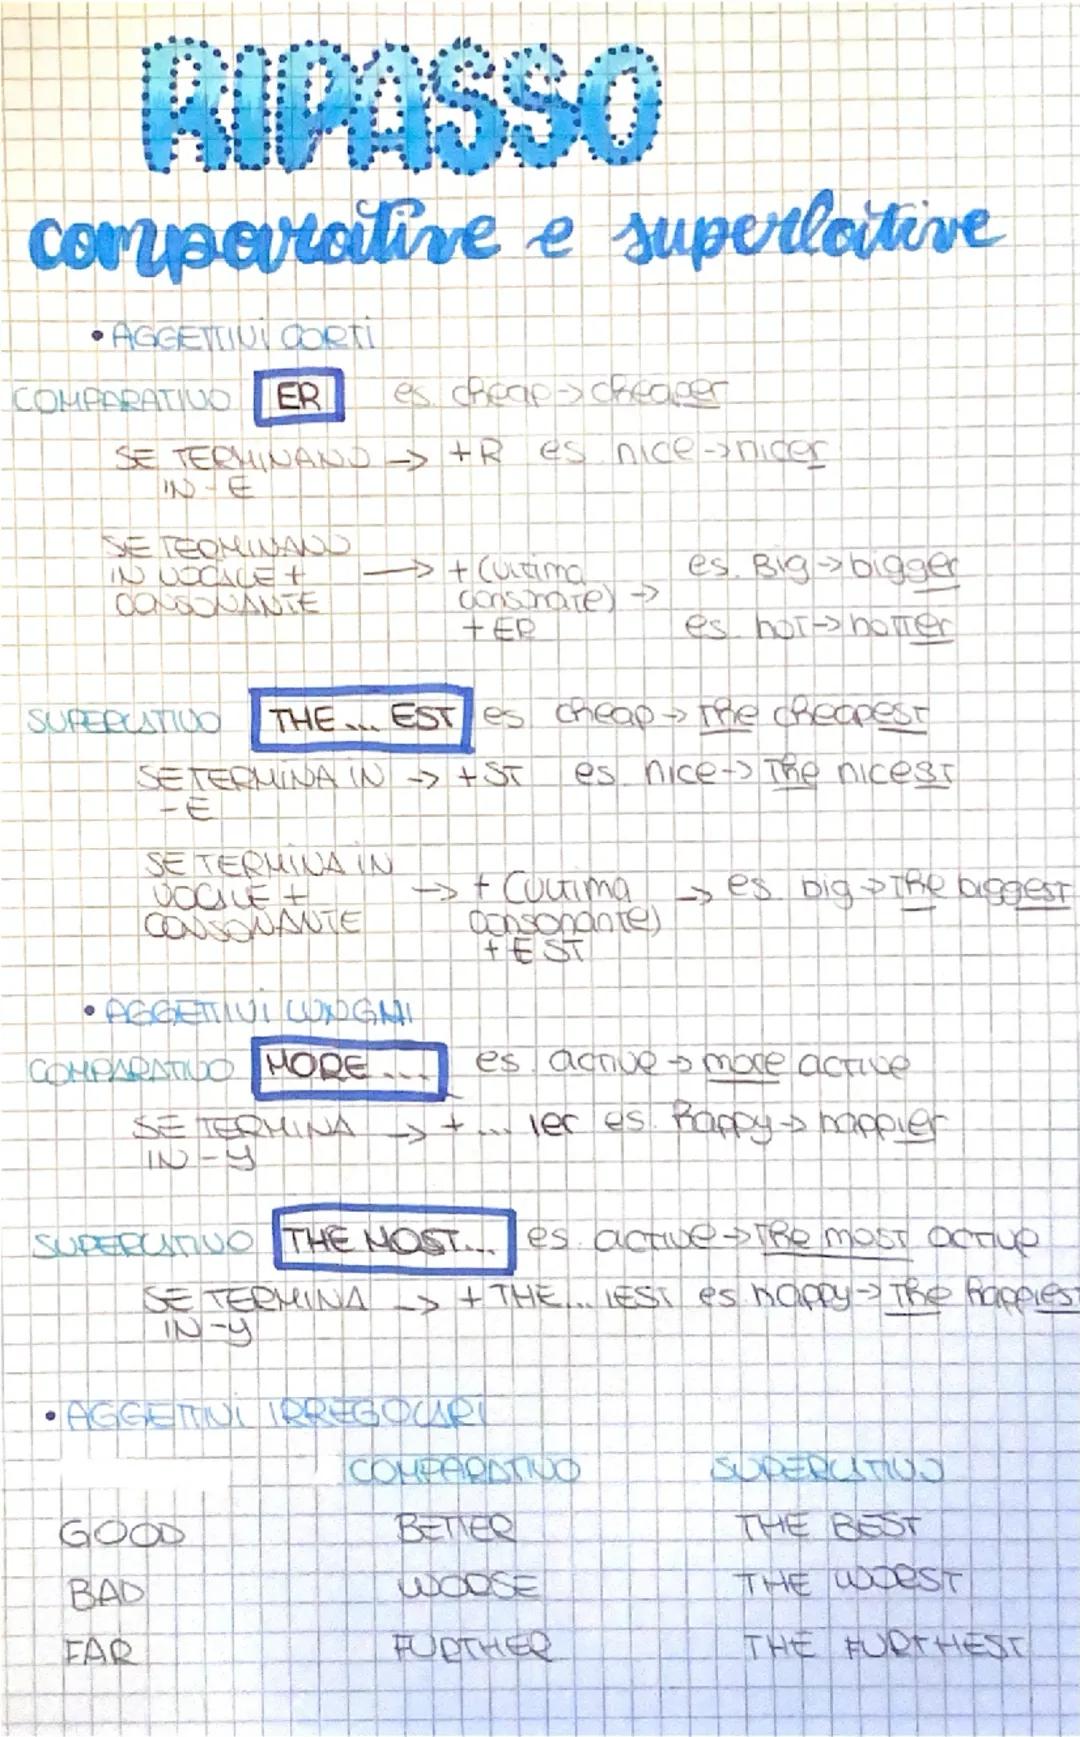 RIPASSO
comparative e superlative
• AGGETTIVI CORTI
COMPARATIVO ER es. cheap → cheaper
SE TERMINANO → +R es. nice → nicer
IN -E
SE TERMINANO
IN VOCALE +
CONSONANTE
→ + (ultima
consonante) →
+ ER
es. Big → bigger
es. hot → hotter
SUPERLATIVO THE ... EST es cheap → the cheapest
SE TERMINA IN → +ST es. nice → The nicest
-E
SE TERMINA IN
VOCALE +
CONSONANTE
→ + (ultima
consonante)
+ EST
→ es. big → the biggest
• AGGETTIVI LUNGHI
COMPARATIVO MORE ... es. active → more active
SE TERMINA → + ... ier es. happy → happier
IN -y
SUPERLATIVO THE MOST... es. active → the most active
SE TERMINA → + THE... IEST es. happy → The happiest
IN -y
• AGGETTIVI IRREGOLARI
COMPARATIVO SUPERLATIVO
GOOD BETTER THE BEST
BAD WORSE THE WORST
FAR FURTHER THE FURTHEST